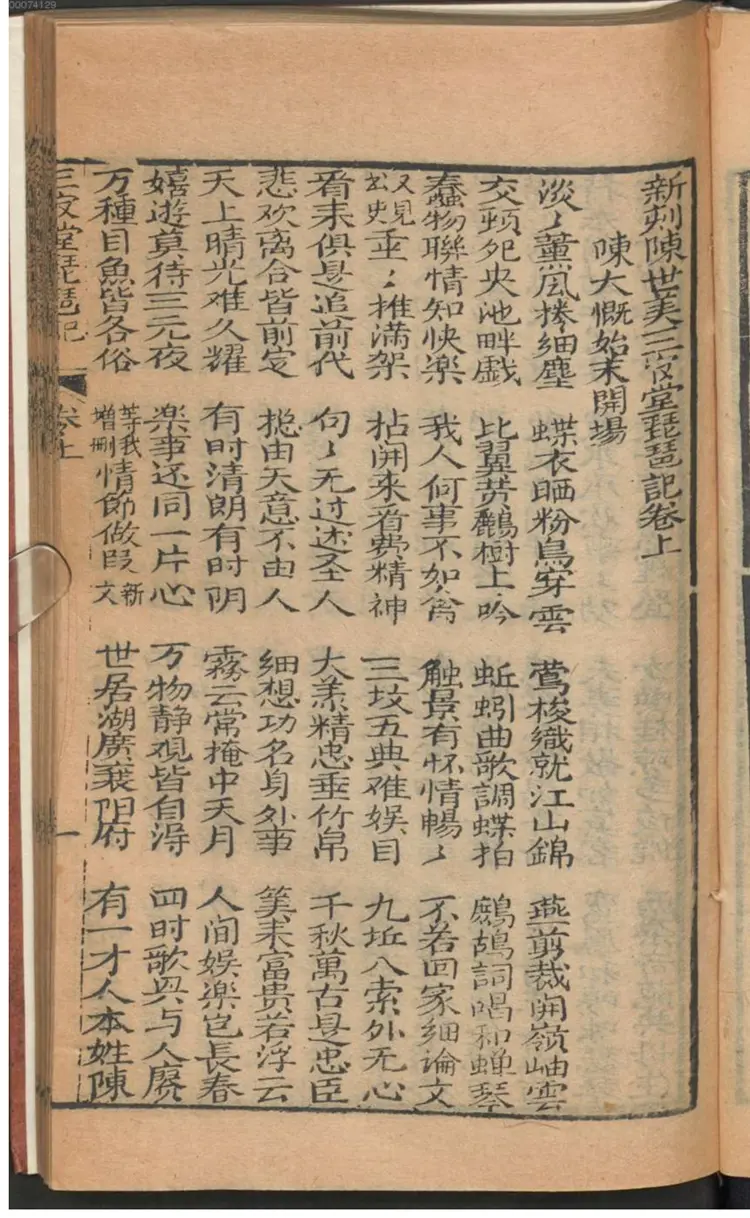 00074129
新刻陳世美三官堂琵琶記卷上
陳大慨始末開場
淡〻董風捲细塵 蝶衣晒粉鳥穿雲 鶯梭織就江山錦 燕剪裁開嶺岫雲
交頭死央池畔戯 比翼共鸝樹上吟 蚯蚓曲歌調蝶拍 鷓鴣詞唱和蝉琴
蠢物聯情知快楽 我人何事不如禽 触景有怀情暢〻 不若回家细論文
又見公史垂〻推满架 拈開来看費精神 三坟五典难娱目 九坵八索外无心
看来俱是追前代 句〻无过述圣人 大羕精忠垂竹帛 千秋萬古是忠臣
悲欢离合皆前定 揔由天意不由人 细想功名身外事 筭来富贵若浮云
天上晴光难久耀 有时清朗有时阴 霧云常掩中天月 人间娯楽岂長春
嬉遊莫待三元夜 楽事还同一片心 万物静观皆自淂 四时歌兴与人赓
万種目魚皆各俗 等我增刪情節做段新文 世居湖廣襄阳府 有一才人本姓陳
三官堂琵琶记 卷上 一